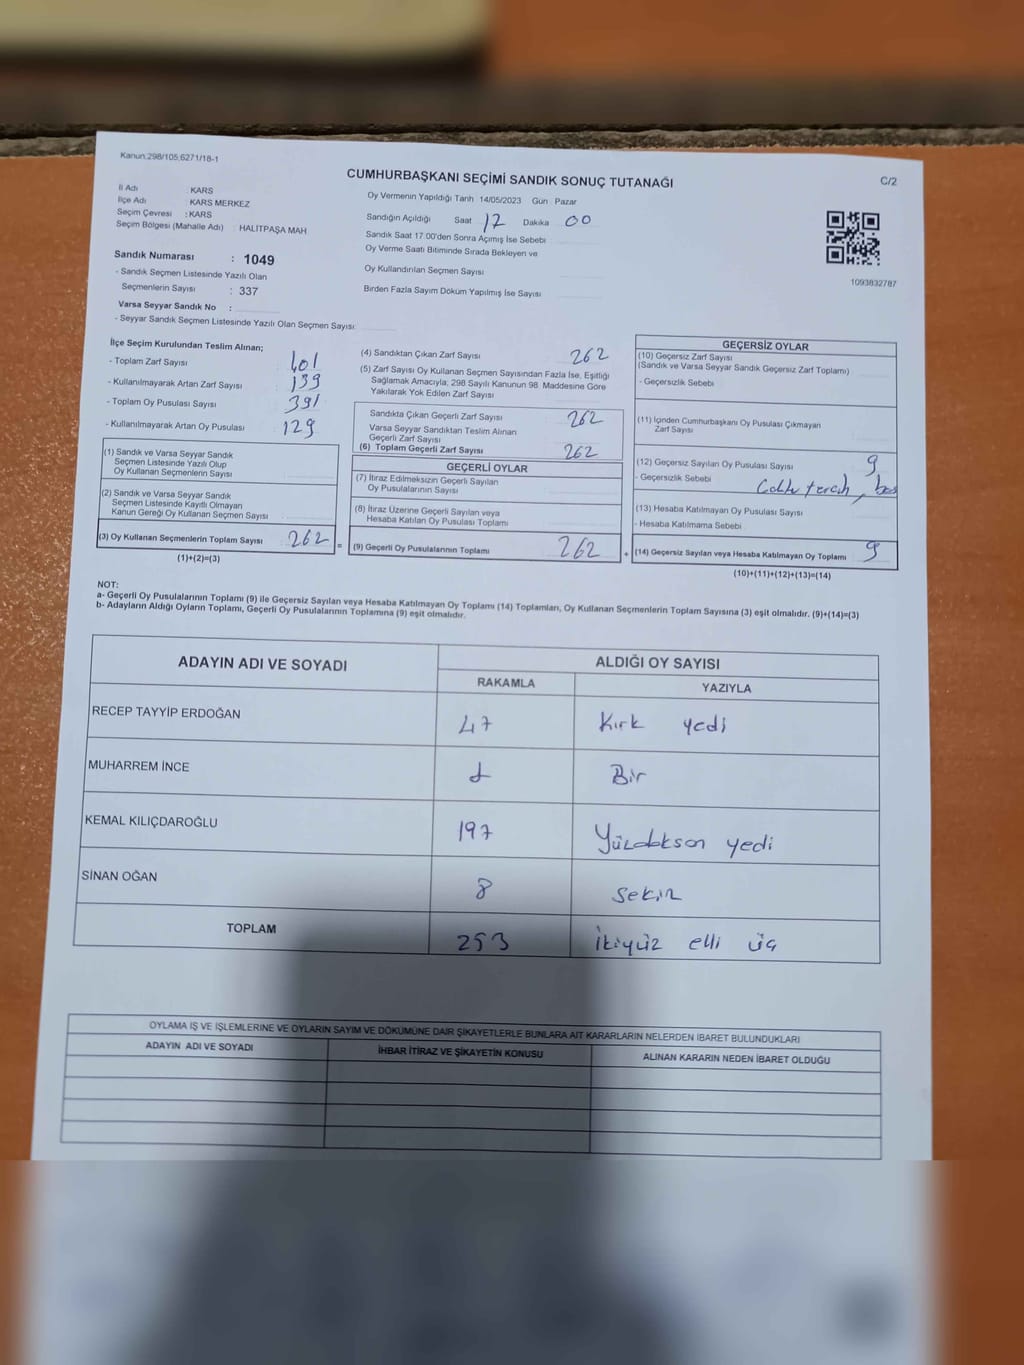 Kanun.298/105,6271/18-1
CUMHURBAŞKANI SEÇİMİ SANDIK SONUÇ TUTANAĞI
C/2
İl Adı : KARS
İlçe Adı : KARS MERKEZ
Seçim Çevresi : KARS
Seçim Bölgesi (Mahalle Adı) : HALİTPAŞA MAH
Oy Vermenin Yapıldığı Tarih 14/05/2023 Gün Pazar
Sandığın Açıldığı Saat 17 Dakika 00
Sandık Saat 17:00'den Sonra Açımış İse Sebebi
Oy Verme Saati Bitiminde Sırada Bekleyen ve
Oy Kullandırılan Seçmen Sayısı
Birden Fazla Sayım Döküm Yapılmış İse Sayısı
1093832787
Sandık Numarası : 1049
- Sandık Seçmen Listesinde Yazılı Olan
Seçmenlerin Sayısı : 337
Varsa Seyyar Sandık No :
- Seyyar Sandık Seçmen Listesinde Yazılı Olan Seçmen Sayısı
İlçe Seçim Kurulundan Teslim Alınan;
- Toplam Zarf Sayısı 401
- Kullanılmayarak Artan Zarf Sayısı 139
- Toplam Oy Pusulası Sayısı 391
- Kullanılmayarak Artan Oy Pusulası 129
(1) Sandık ve Varsa Seyyar Sandık
Seçmen Listesinde Yazılı Olup
Oy Kullanan Seçmenlerin Sayısı
(2) Sandık ve Varsa Seyyar Sandık
Seçmen Listesinde Kayıtlı Olmayan
Kanun Gereği Oy Kullanan Seçmen Sayısı
(3) Oy Kullanan Seçmenlerin Toplam Sayısı 262 =
(1)+(2)=(3)
(4) Sandıktan Çıkan Zarf Sayısı 262
(5) Zarf Sayısı Oy Kullanan Seçmen Sayısından Fazla İse, Eşitliği
Sağlamak Amacıyla; 298 Sayılı Kanunun 98. Maddesine Göre
Yakılarak Yok Edilen Zarf Sayısı
Sandıkta Çıkan Geçerli Zarf Sayısı 262
Varsa Seyyar Sandıktan Teslim Alınan
Geçerli Zarf Sayısı
(6) Toplam Geçerli Zarf Sayısı 262
GEÇERLİ OYLAR
(7) İtiraz Edilmeksizin Geçerli Sayılan
Oy Pusulalarının Sayısı
(8) İtiraz Üzerine Geçerli Sayılan veya
Hesaba Katılan Oy Pusulası Toplamı
(9) Geçerli Oy Pusulalarının Toplamı 262 +
GEÇERSİZ OYLAR
(10) Geçersiz Zarf Sayısı
(Sandık ve Varsa Seyyar Sandık Geçersiz Zarf Toplamı)
- Geçersizlik Sebebi
(11) İçinden Cumhurbaşkanı Oy Pusulası Çıkmayan
Zarf Sayısı
(12) Geçersiz Sayılan Oy Pusulası Sayısı 9
- Geçersizlik Sebebi tercih, boş
(13) Hesaba Katılmayan Oy Pusulası Sayısı
- Hesaba Katılmama Sebebi
(14) Geçersiz Sayılan veya Hesaba Katılmayan Oy Toplamı 9
(10)+(11)+(12)+(13)=(14)
NOT:
a- Geçerli Oy Pusulalarının Toplamı (9) ile Geçersiz Sayılan veya Hesaba Katılmayan Oy Toplamı (14) Toplamları, Oy Kullanan Seçmenlerin Toplam Sayısına (3) eşit olmalıdır. (9)+(14)=(3)
b- Adayların Aldığı Oyların Toplamı, Geçerli Oy Pusulalarının Toplamına (9) eşit olmalıdır.
ADAYIN ADI VE SOYADI ALDIĞI OY SAYISI
RAKAMLA YAZIYLA
RECEP TAYYİP ERDOĞAN 47 Kırk yedi
MUHARREM İNCE 1 Bir
KEMAL KILIÇDAROĞLU 197 Yüzdoksan yedi
SİNAN OĞAN 8 Sekiz
TOPLAM 253 İkiyüz elli üç
OYLAMA İŞ VE İŞLEMLERİNE VE OYLARIN SAYIM VE DÖKÜMÜNE DAİR ŞİKAYETLERLE BUNLARA AİT KARARLARIN NELERDEN İBARET BULUNDUKLARI
ADAYIN ADI VE SOYADI İHBAR İTİRAZ VE ŞİKAYETİN KONUSU ALINAN KARARIN NEDEN İBARET OLDUĞU